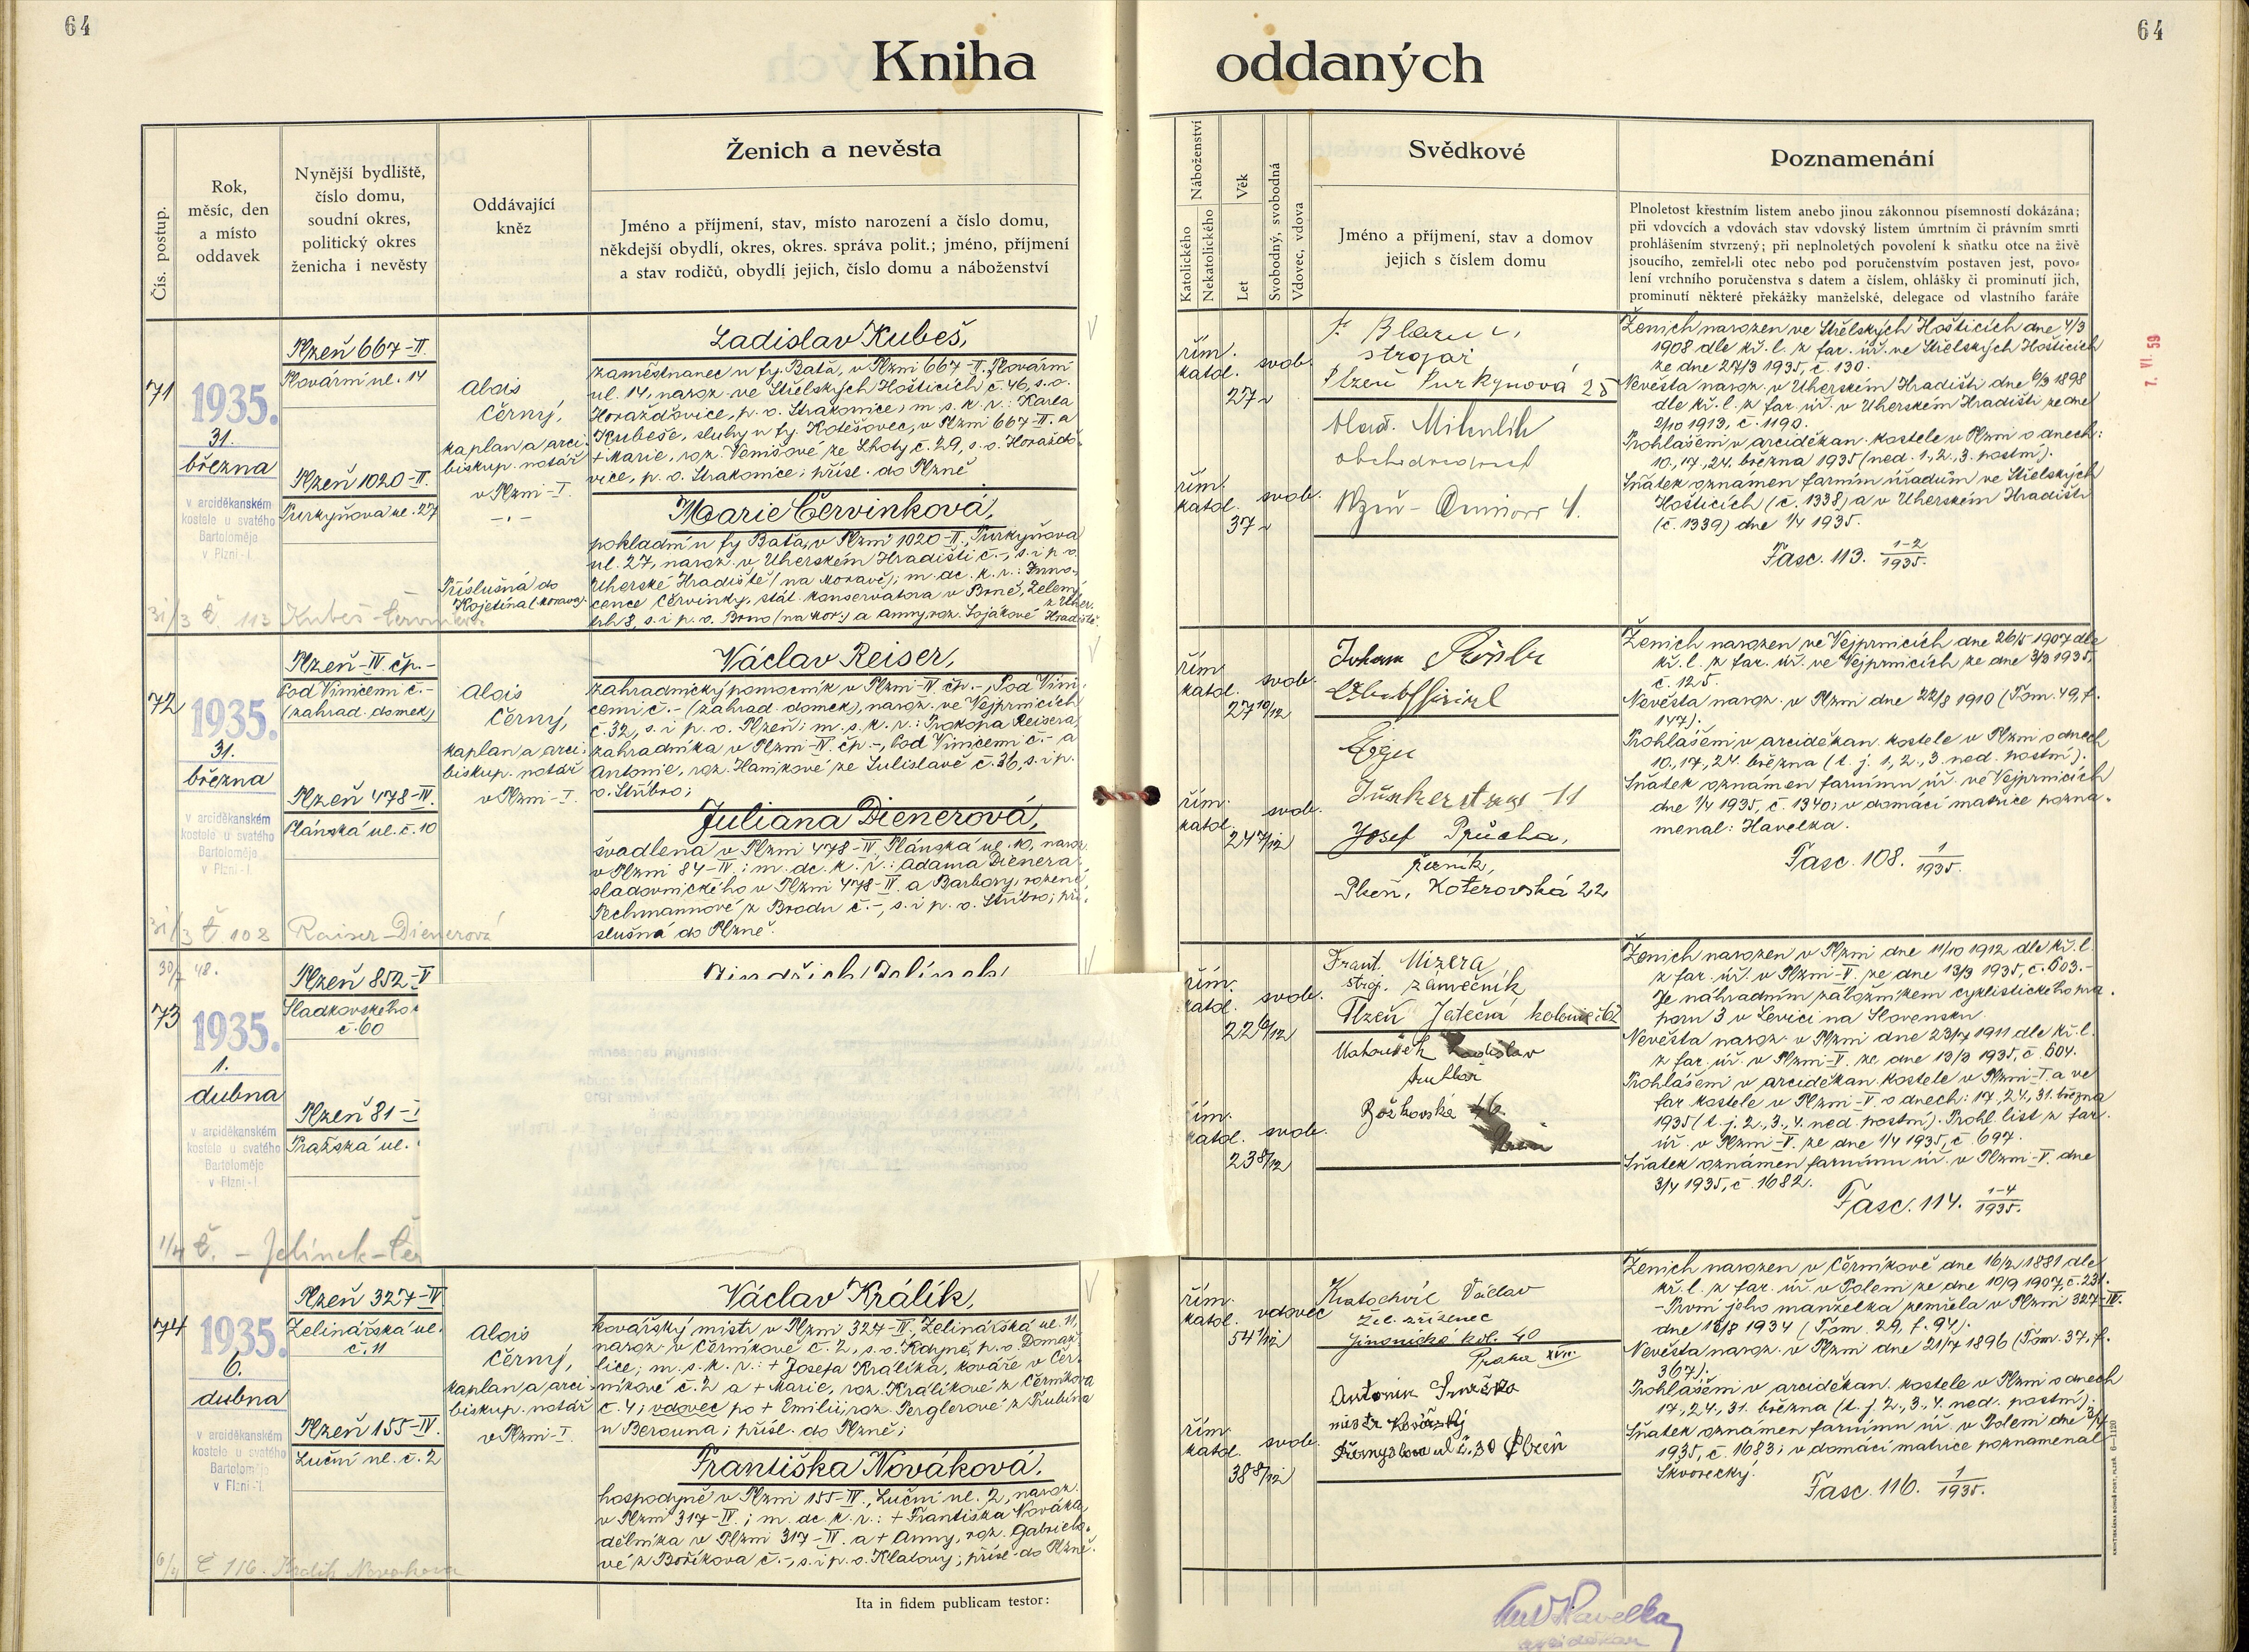 64
64
Kniha
oddaných
Čís. postup.
Rok,
měsíc, den
a místo
oddavek
Nynější bydliště,
číslo domu,
soudní okres,
politický okres
ženicha i nevěsty
Oddávající
kněz
Ženich a nevěsta
Jméno a příjmení, stav, místo narození a číslo domu,
někdejší obydlí, okres, okres. správa polit.; jméno, příjmení
a stav rodičů, obydlí jejich, číslo domu a náboženství
Náboženství
Katolického
Nekatolického
Věk
Let
Svobodný, svobodná
Vdovec, vdova
Svědkové
Jméno a příjmení, stav a domov
jejich s číslem domu
Poznamenání
Plnoletost křestním listem anebo jinou zákonnou písemností dokázána;
při vdovcích a vdovách stav vdovský listem úmrtním či právním smrti
prohlášením stvrzený; při neplnoletých povolení k sňatku otce na živě
jsoucího, zemřel-li otec nebo pod poručenstvím postaven jest, povo-
lení vrchního poručenstva s datem a číslem, ohlášky či prominutí jich,
prominutí některé překážky manželské, delegace od vlastního faráře
71
1935.
31.
března
v arciděkanském
kostele u svatého
Bartoloměje
v Plzni-I.
Plzeň 667-II.
Plovární ul. 14
Plzeň 1020-II.
Purkyňova ul. 27
Alois
Černý,
kaplan a arci-
biskup. notář
v Plzni-I.
Příslušná do
Kojetína (Morava).
31/3 č. 113 Kubeš-Červinková
Ladislav Kubeš,
zaměstnanec u fy. Baťa, v Plzni 667-II., Plovární
ul. 14, naroz. ve Střelských Hošticích č. 46, s. o.
Horažďovice, p. o. Strakonice; m. s. k. r.: Karla
Kubeše, sluhy u fy. Kotěšovec, v Plzni 667-II. a
+ Marie, roz. Venišové ze Lhoty č. 29, s. o. Horaždo-
vice, p. o. Strakonice; přísl. do Plzně
Marie Červinková,
pokladní u fy Baťa, v Plzni 1020-II., Purkyňova
ul. 27, naroz. v Uherském Hradišti č. -, s. i p. o.
Uherské Hradiště (na Moravě); m. dc. k. r.: Inno-
cence Červinky, stát. konservatora v Brně, Zelený
trh 8, s. i p. o. Brno (na Mor.) a Anny, roz. Lojákové z Uher. Hradiště.
řím.
katol.
svob.
27
řím.
katol.
svob.
37
strojař
Plzeň Purkyňová 25
Vlad. Mikulík
obchodvedoucí
Ženich narozen ve Střelských Hošticích dne 4/3
1908 dle kř. l. z far. úř. ve Střelských Hošticích
ze dne 27/3 1935, č. 130.
Nevěsta naroz. v Uherském Hradišti dne 6/3 1898
dle kř. l. z far. úř. v Uherském Hradišti ze dne
2/10 1913, č. 1190.
Prohlášeni v arciděkan. kostele v Plzni o dnech:
10., 17., 24. března 1935 (ned. 1., 2., 3. postní).
Sňatek oznámen farním úřadům ve Střelských
Hošticích (č. 1338) a v Uherském Hradišti
(č. 1339) dne 1/4 1935.
Fasc. 113. 1-2/1935.
7. VI. 59
72
1935.
31.
března
v arciděkanském
kostele u svatého
Bartoloměje
v Plzni-I.
Plzeň-IV. čp. -
Pod Vinicemi č. -
(zahrad. domek)
Plzeň 478-IV.
Plánská ul. č. 10
Alois
Černý,
kaplan a arci-
biskup. notář
v Plzni-I.
31/3 č. 108 Raiser-Dienerová
Václav Reiser,
zahradnický pomocník v Plzni-IV. čp. -, Pod Vini-
cemi č. - (zahrad. domek), naroz. ve Vejprnicích
č. 32, s. i p. o. Plzeň; m. s. k. r.: Prokopa Reisera,
zahradníka v Plzni-IV. čp. -, Pod Vinicemi č. - a
Antonie, roz. Hanikové ze Sulislavě č. 36, s. i p.
o. Stříbro;
Juliana Dienerová,
švadlena v Plzni 478-IV., Plánská ul. 10, naroz.
v Plzni 84-IV.; m. dc. k. r.: Adama Dienera,
sladovnického v Plzni 478-IV. a Barbory, rozené
Pechmannové z Brodu č. -, s. i p. o. Stříbro; pří-
slušná do Plzně.
řím.
katol.
svob.
27 10/12
řím.
katol.
svob.
24 7/12
Johann
Eger
Josef Průcha,
řezník,
Plzeň, Koterovská 22
Ženich narozen ve Vejprnicích dne 26/5 1907 dle
kř. l. z far. úř. ve Vejprnicích ze dne 3/3 1935,
č. 125.
Nevěsta naroz. v Plzni dne 22/8 1910 (Tom. 49, f.
147).
Prohlášeni v arciděkan. kostele v Plzni o dnech
10., 17., 24. března (t. j. 1., 2., 3. ned. postní).
Sňatek oznámen farnímu úř. ve Vejprnicích
dne 1/4 1935, č. 1340; v domácí matrice pozna-
menal: Havelka.
Fasc. 108. 1/1935.
30/7 48.
73
1935.
1.
dubna
v arciděkanském
kostele u svatého
Bartoloměje
v Plzni-I.
Plzeň 852-V
Sladkovského
č. 60
Plzeň 81-
Pražská ul.
1/4 č. - Jelínek-Čer
Jindřich Jelínek,
řím.
katol.
svob.
22 6/12
řím.
katol.
svob.
23 8/12
Frant. Mizera
stroj. zámečník
Plzeň Jateční kolonie č. 62
Mahoušek Ladislav
truhlář
Božkovská 46
Plzeň
Ženich narozen v Plzni dne 11/10 1912 dle kř. l.
z far. úř. v Plzni-V. ze dne 13/3 1935, č. 603.-
Je náhradním záložníkem cyklistického pra-
poru 3 v Levici na Slovensku.
Nevěsta naroz. v Plzni dne 23/7 1911 dle kř. l.
z far. úř. v Plzni-V. ze dne 13/3 1935, č. 604.
Prohlášeni v arciděkan. kostele v Plzni-I. a ve
far. kostele v Plzni-V. o dnech: 17., 24., 31. března
1935 (t. j. 2., 3., 4. ned. postní). Prohl. list z far.
úř. v Plzni-V. ze dne 1/4 1935, č. 697.
Sňatek oznámen farnímu úř. v Plzni-V. dne
3/4 1935, č. 1682.
Fasc. 114. 1-4/1935.
74
1935.
6.
dubna
v arciděkanském
kostele u svatého
Bartoloměje
v Plzni-I.
Plzeň 327-IV
Zelinářská ul.
č. 11
Plzeň 155-IV.
Luční ul. č. 2
Alois
Černý,
kaplan a arci-
biskup. notář
v Plzni-I.
6/4 č 116. Kralík Novaková
Václav Králík,
kovářský mistr v Plzni 327-IV., Zelinářská ul. 11,
naroz. v Černíkově č. 2, s. o. Kdyně, p. o. Domaž-
lice; m. s. k. r.: + Josefa Králíka, kováře v Čer-
níkově č. 2 a + Marie, roz. Králíkové z Černíkova
č. 4; vdovec po + Emilii, roz. Perglerové z Trubína
u Berouna; přísl. do Plzně;
Františka Nováková,
hospodyně v Plzni 155-IV., Luční ul. 2, naroz.
v Plzni 317-IV.; m. dc. k. r.: + Františka Nováka,
dělníka v Plzni 317-IV. a + Anny, roz. Gabrielo-
vé z Boříkova č. -, s. i p. o. Klatovy; přísl. do Plzně.
Ita in fidem publicam testor:
řím.
katol.
vdovec
54 1/12
řím.
katol.
svob.
38 8/12
Kratochvíl Václav
žel. zřízenec
Jinonická kol. 40
Praha XVII.
Antonín
mistr kovářský
Přemyslova ul č. 30 Plzeň
Ženich narozen v Černíkově dne 16/2 1881 dle
kř. l. z far. úř. v Poleni ze dne 10/9 1907, č. 231.
- První jeho manželka zemřela v Plzni 327-IV.
dne 18/8 1934 (Tom. 29, f. 94).
Nevěsta naroz. v Plzni dne 21/7 1896 (Tom. 37, f.
367).
Prohlášeni v arciděkan. kostele v Plzni o dnech
17., 24., 31. března (t. j. 2., 3., 4. ned. postní).
Sňatek oznámen farnímu úř. v Poleni dne 8/4
1935, č. 1683; v domácí matrice poznamenal
Škvorecký.
Fasc. 116. 1/1935.
Havelka
arciděkan